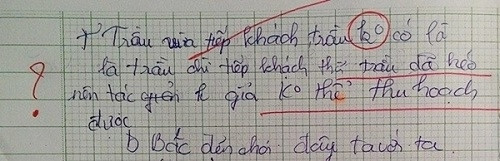 + Trầu vừa tiếp khách, trầu ko có lá
lá trầu chỉ tiếp khách thế trầu đã héo
nên tác giả ko thể thu hoạch
được
b Bác đến chơi đây ta với ta.
?